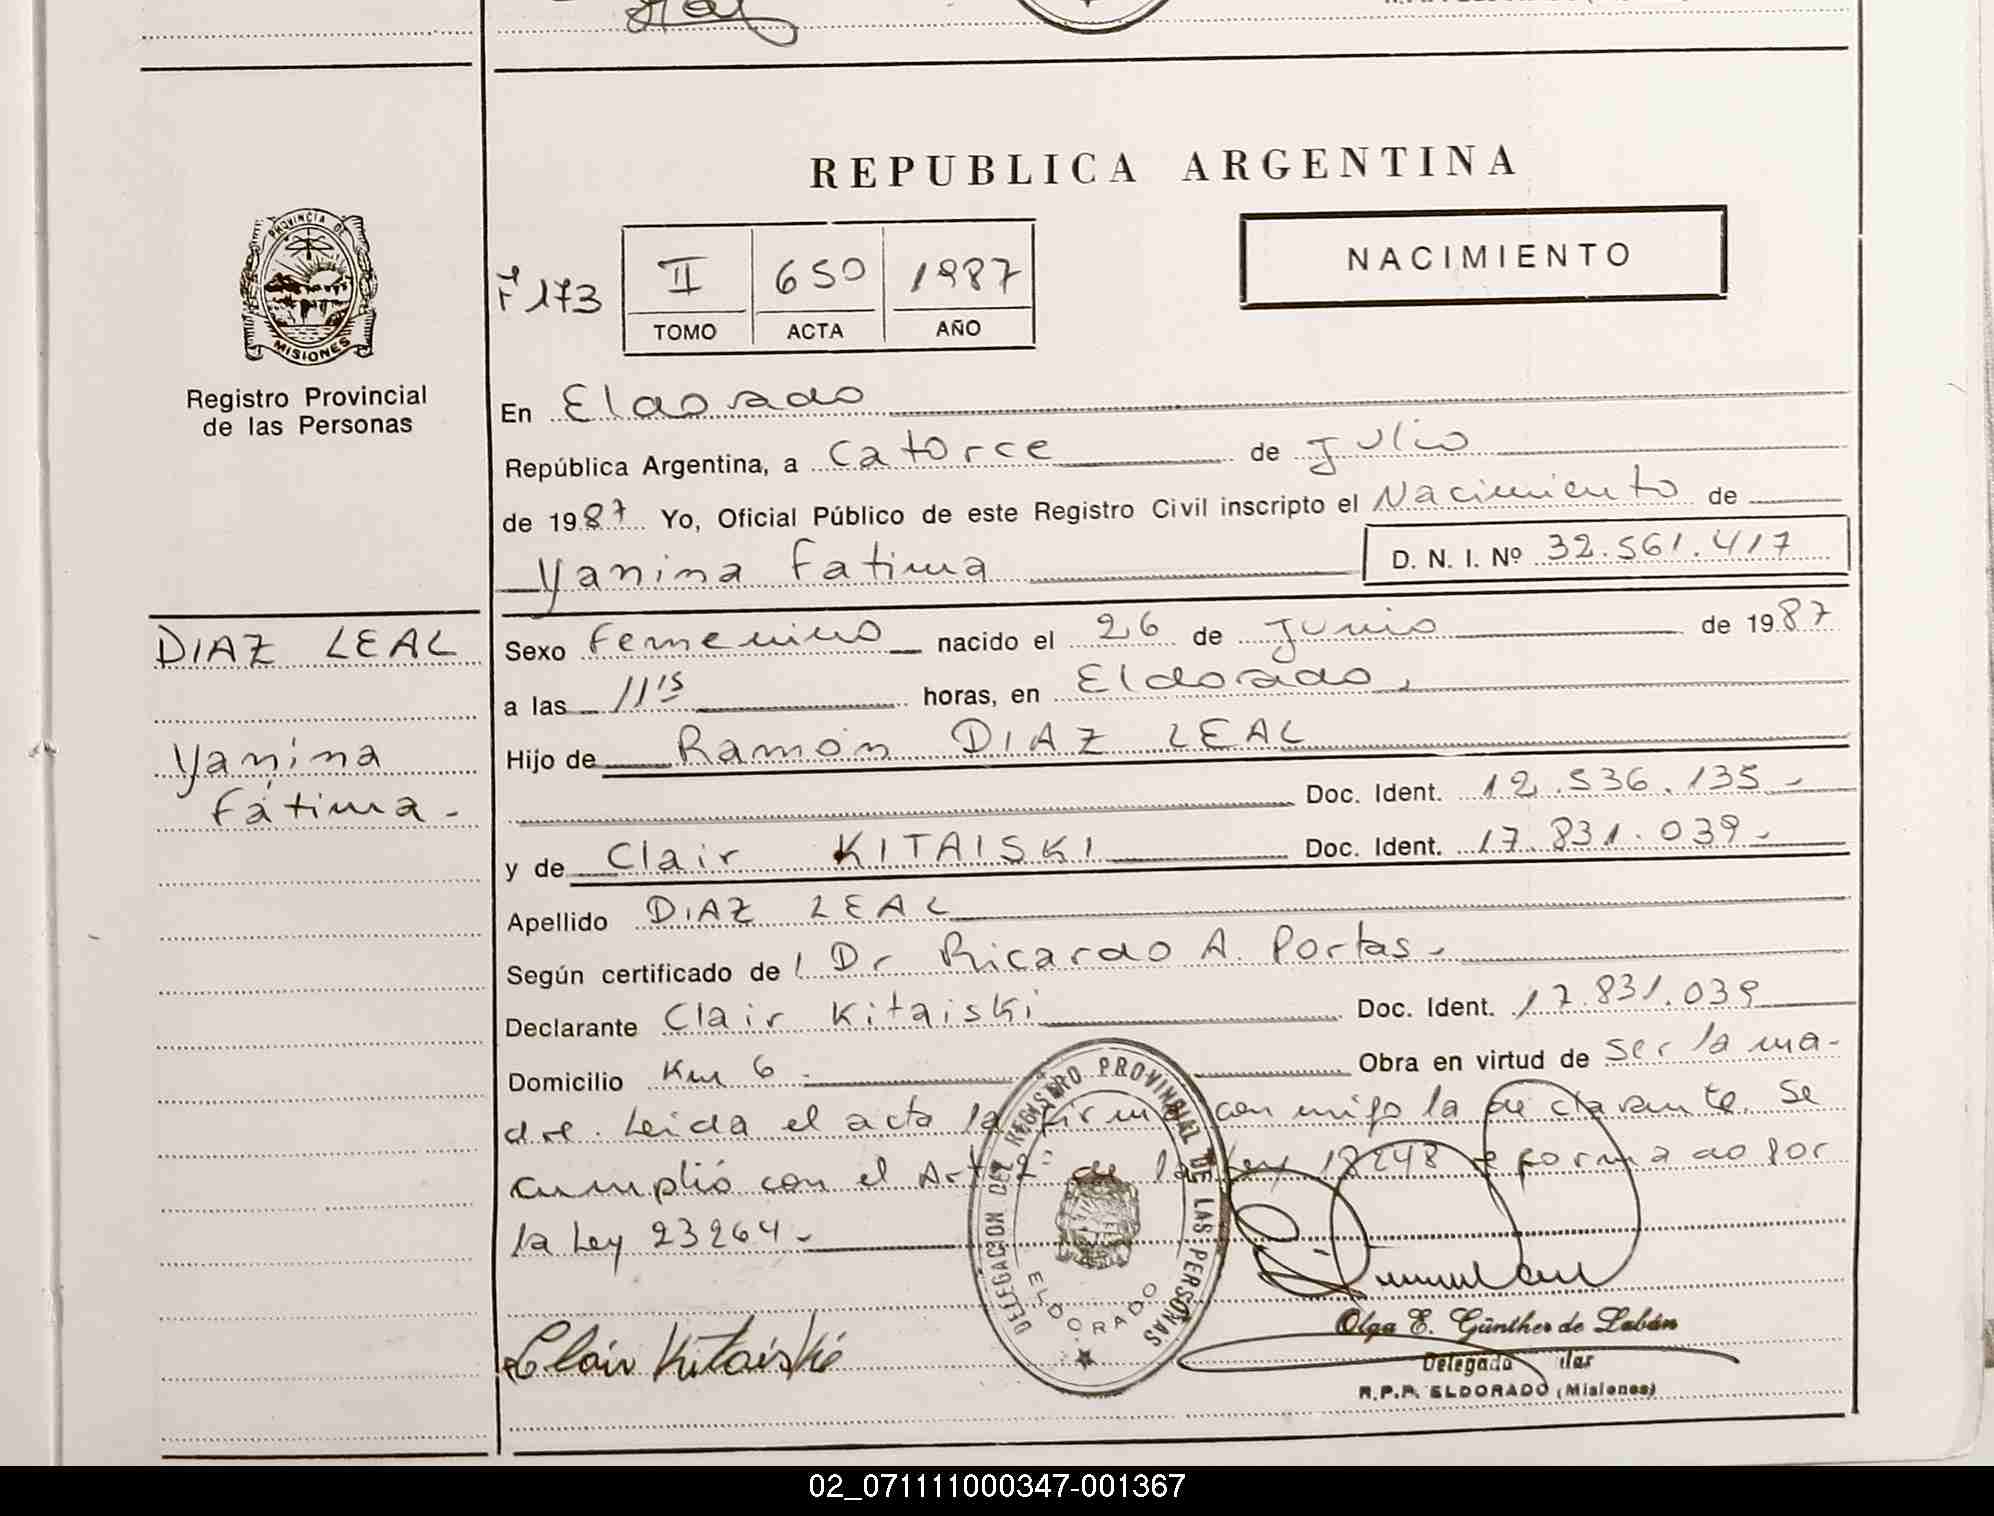 REPUBLICA ARGENTINA
PROVINCIA DE
MISIONES
Registro Provincial
de las Personas
Fº 173
II 650 1987
TOMO ACTA AÑO
NACIMIENTO
En Eldorado
República Argentina, a Catorce de Julio
de 1987 Yo, Oficial Público de este Registro Civil inscripto el Nacimiento de
Yanina Fatima D. N. I. Nº 32.561.417
DIAZ LEAL
Yanina
Fátima -
Sexo Femenino nacido el 26 de Junio de 1987
a las 11'15 horas, en Eldorado,
Hijo de Ramón DIAZ LEAL
Doc. Ident. 12.536.135 -
y de Clair KITAISKI Doc. Ident. 17.831.039 -
Apellido DIAZ LEAL
Según certificado de l Dr Ricardo A. Portas -
Declarante Clair Kitaiski Doc. Ident. 17.831.039
Domicilio Km 6 Obra en virtud de ser la ma-
dre. Leida el acta la firma conmigo la declarante. Se
cumplió con el Art 2º de la Ley 18248 reformado por
la Ley 23264 -
DELEGACION DEL REGISTRO PROVINCIAL DE LAS PERSONAS
ELDORADO
Clair Kitaiski
Olga E. Günther de Labán
Delegada
R.P.P. ELDORADO (Misiones)
02_071111000347-001367